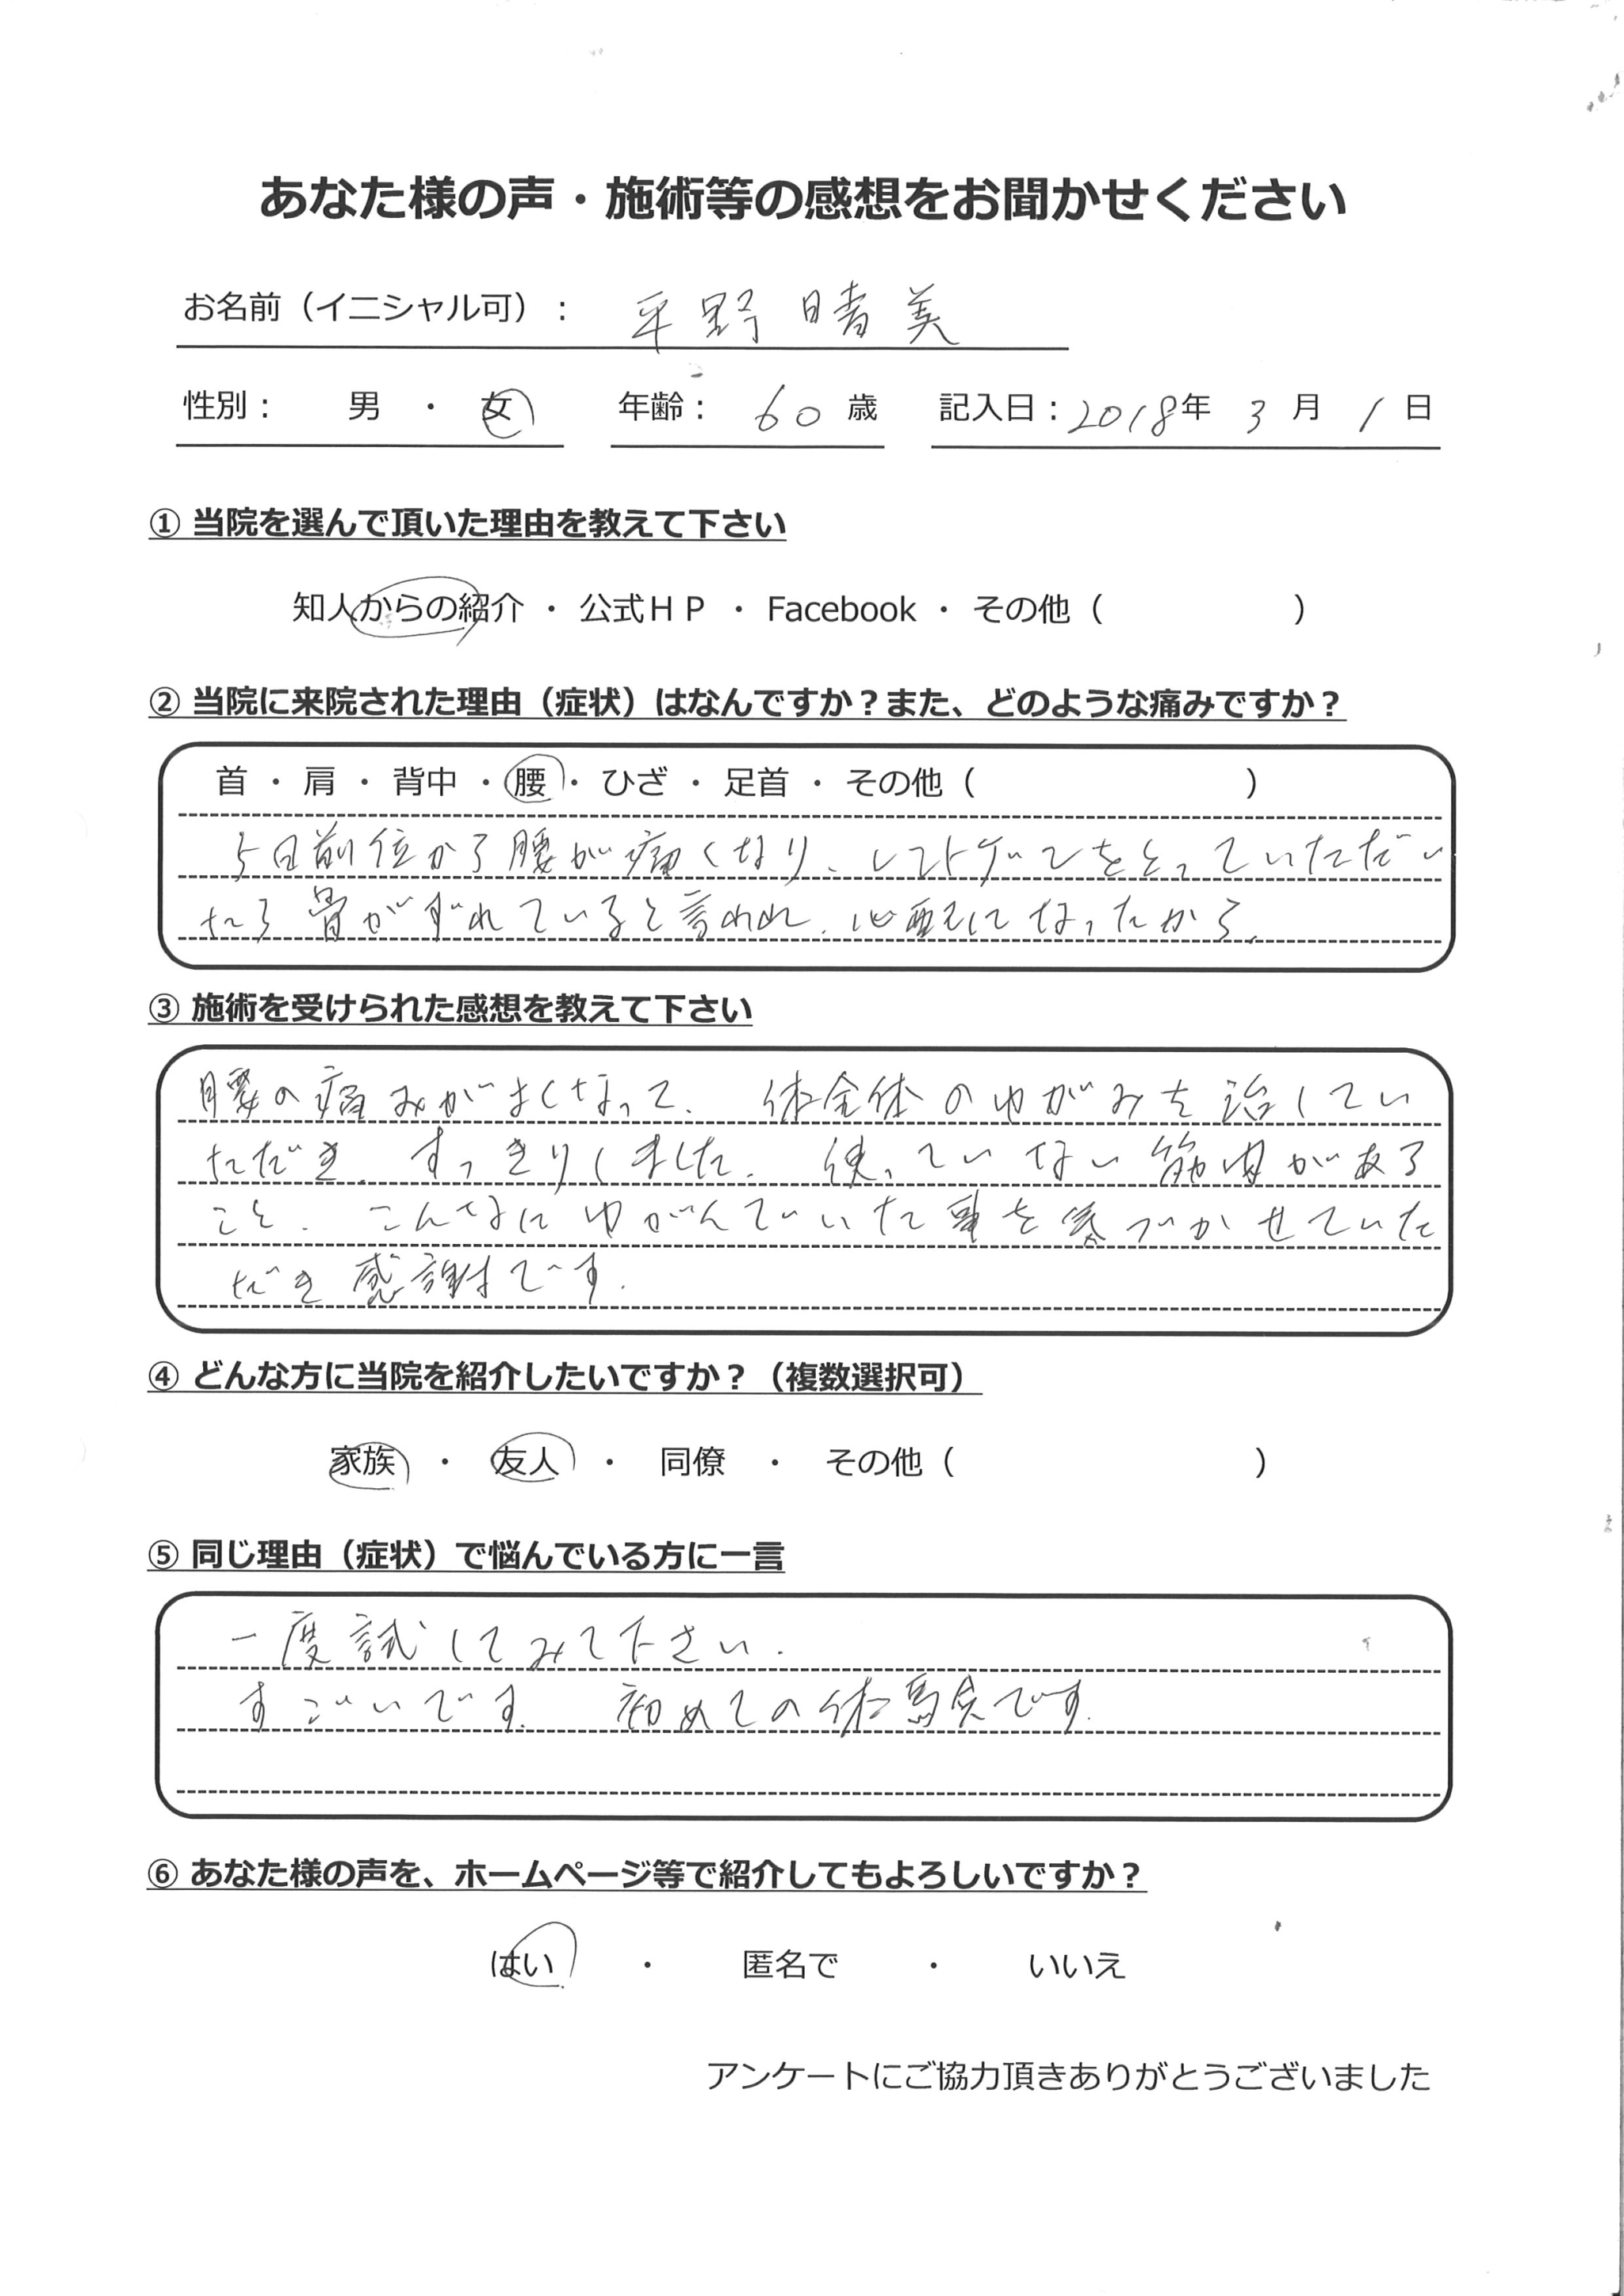 あなた様の声・施術等の感想をお聞かせください
お名前（イニシャル可）： 平野晴美
性別： 男 ・ 女 年齢： 60 歳 記入日：2018年 3 月 1 日
① 当院を選んで頂いた理由を教えて下さい
知人からの紹介 ・ 公式ＨＰ ・ Facebook ・ その他（ ）
② 当院に来院された理由（症状）はなんですか？また、どのような痛みですか？
首 ・ 肩 ・ 背中 ・ 腰 ・ ひざ ・ 足首 ・ その他（ ）
5日前位から腰が痛くなり、レントゲンをとっていただい
たら骨がずれていると言われ、心配になったから。
③ 施術を受けられた感想を教えて下さい
腰の痛みがなくなって、体全体のゆがみを治してい
ただき、すっきりしました。使っていない筋肉がある
こと、こんなにゆがんでいた事を気づかせていた
だき感謝です。
④ どんな方に当院を紹介したいですか？（複数選択可）
家族 ・ 友人 ・ 同僚 ・ その他（ ）
⑤ 同じ理由（症状）で悩んでいる方に一言
一度試してみて下さい。
すごいです。初めての体験です。
⑥ あなた様の声を、ホームページ等で紹介してもよろしいですか？
はい ・ 匿名で ・ いいえ
アンケートにご協力頂きありがとうございました